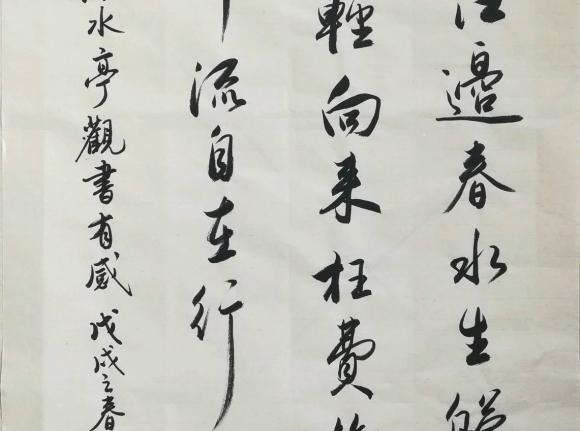 江邊春水生
輕向来枉費
中流自在行
水亭觀書有感 戊戌之春